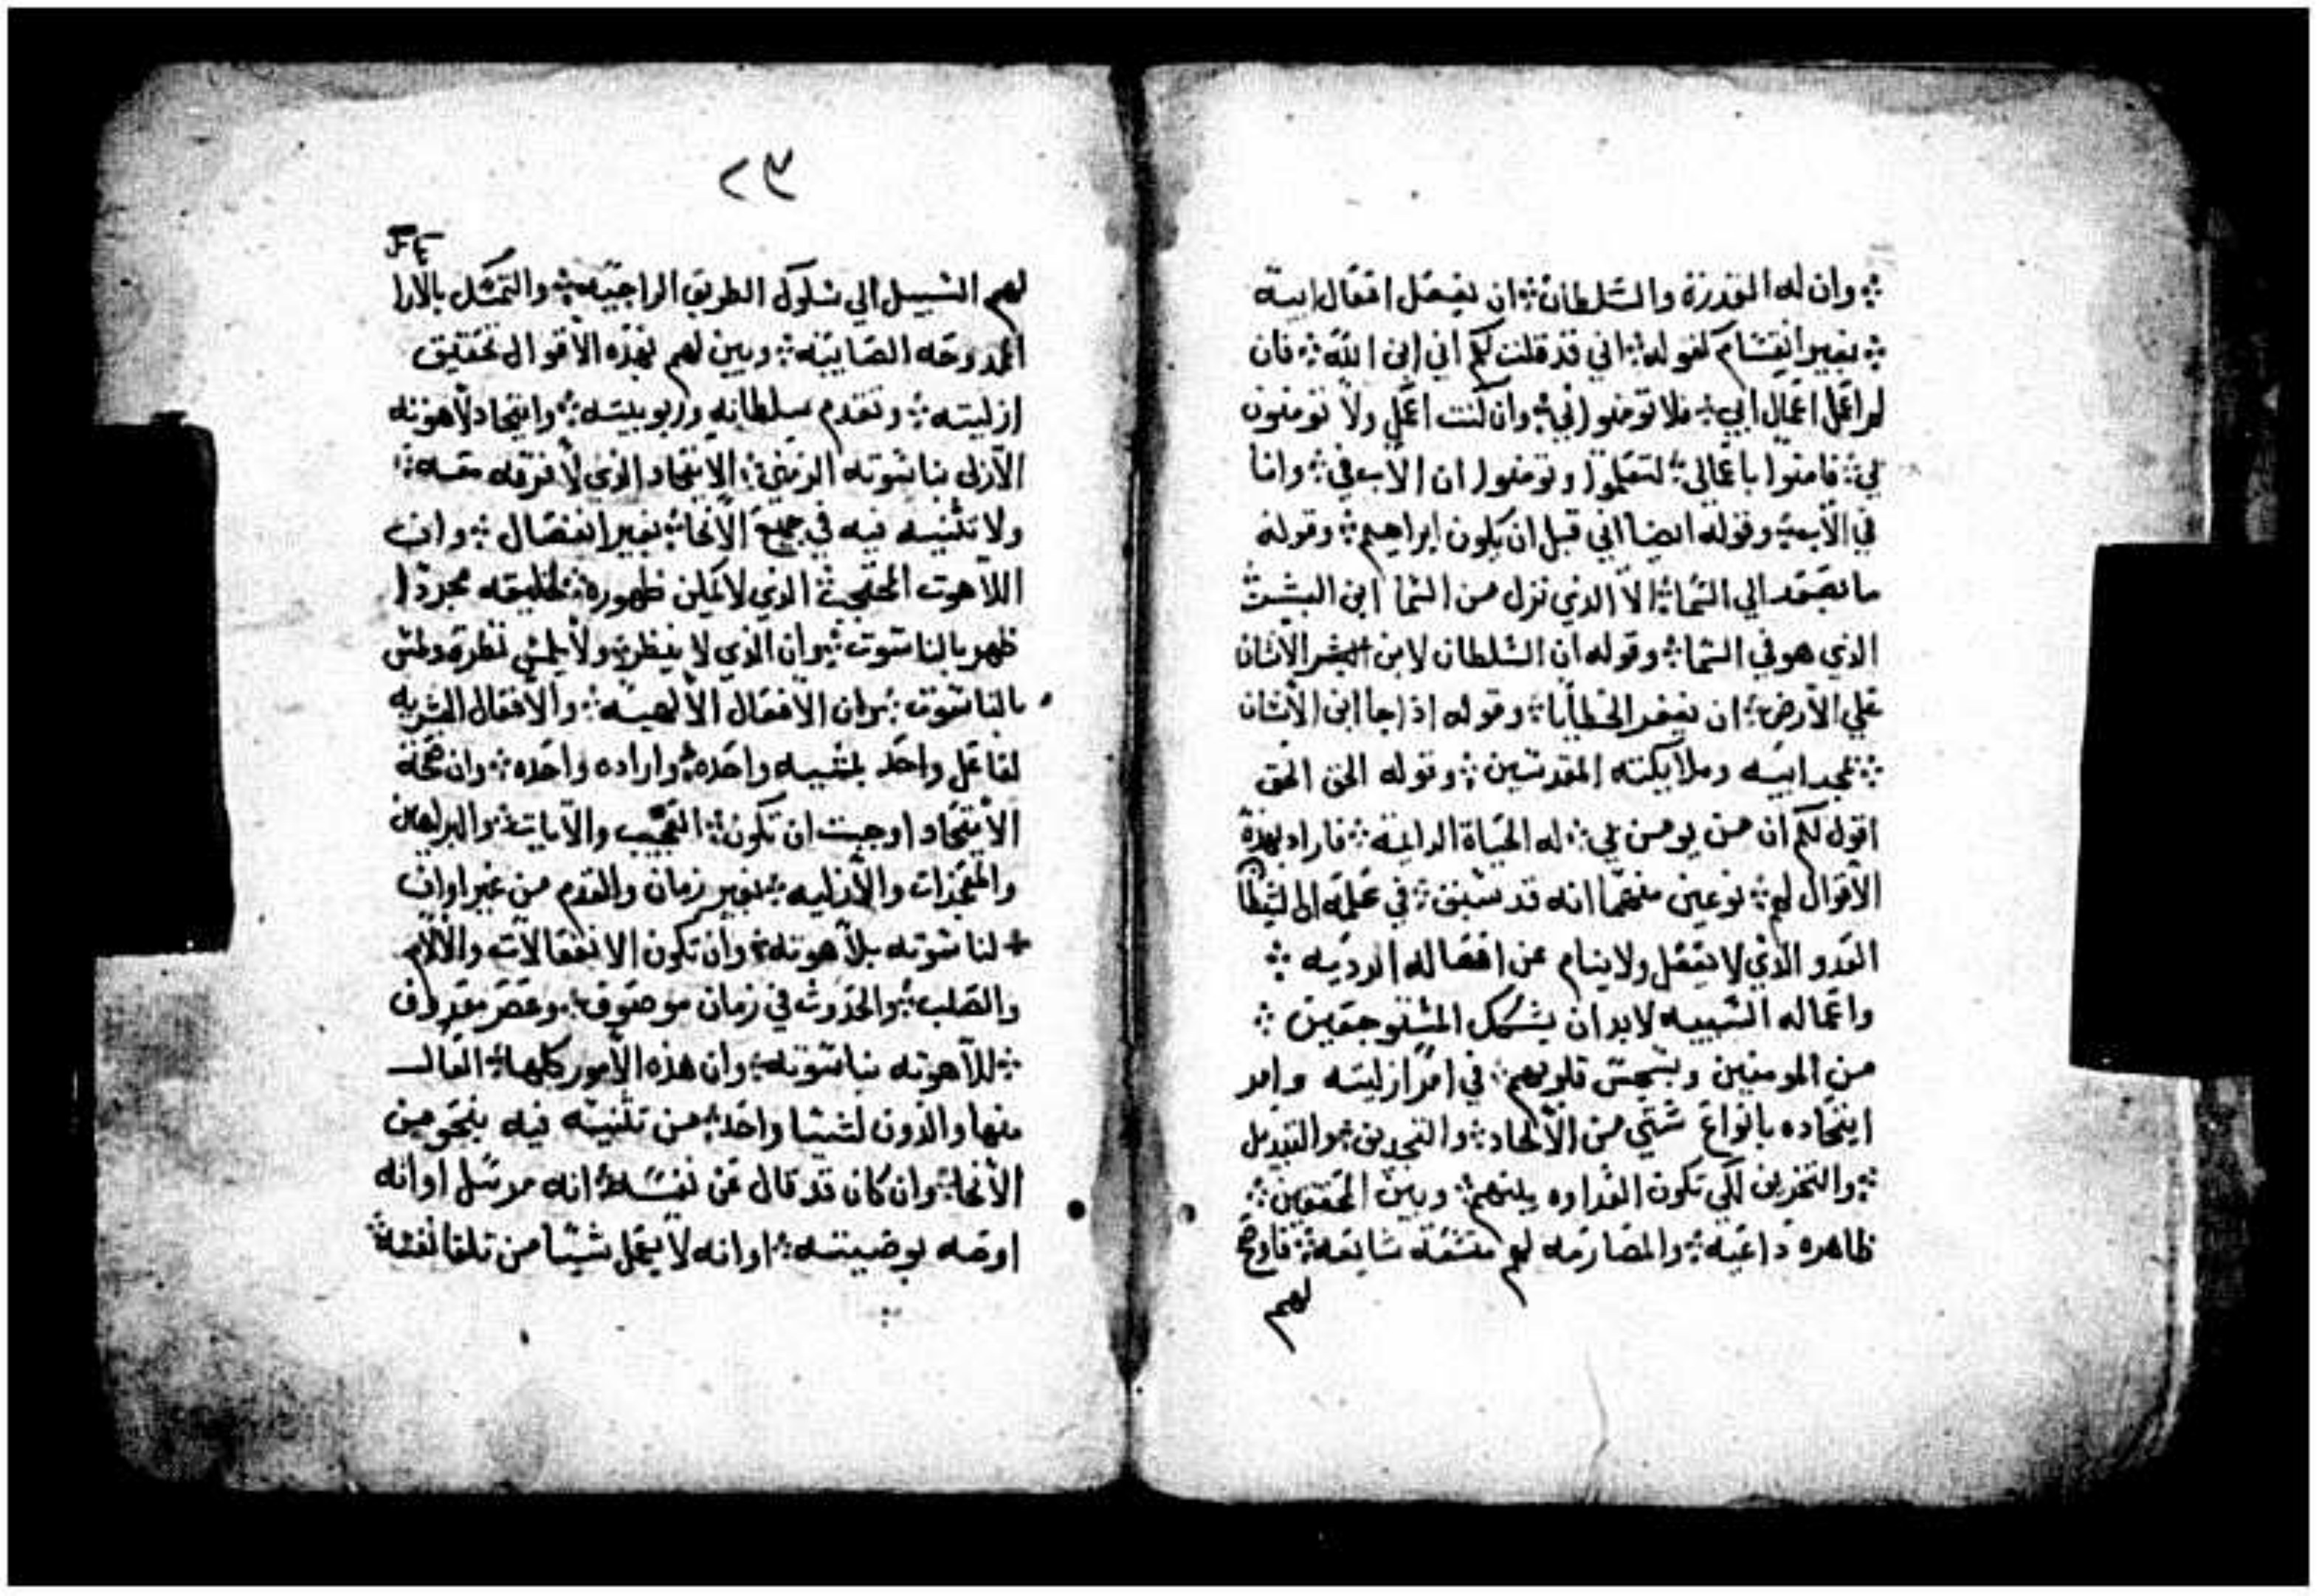 وان له المقدرة والسلطان ان يفعل افعال ابيه
بغير انقسام كقوله اني قد قلت لكم اني ابن الله فان
لم اعمل اعمال ابي فلا تومنوا بي وان كنت اعمل ولا تومنون
بي فامنوا باعمالي لتعلموا وتومنوا ان الاب في وانا
في الاب وقوله ايضا اني قبل ان يكون ابراهيم وقوله
ما يصعد الي السما الا الذي نزل من السما ابن البشر
الذي هو في السما وقوله ان السلطان لابن الانسان
علي الارض ان يغفر الخطايا وقوله اذا جا ابن الانسان
بمجد ابيه وملايكته المقدسين وقوله الحق الحق
اقول لكم ان من يومن بي له الحياة الدايمه فاراد بهذه
الاقوال لهم نوعين منهما انه قد سبق في علمه ان الشيطان
العدو الذي لا يغفل ولا ينام عن افعاله الرديه
واعماله لابد ان يشكك
من المومنين قلوبهم في امر ازليته وامر
ايتحاده بانواع شتي من الالحاد والتبديل
لكي تكون العداوه بينهم وبين المحققين
ظاهره والمصارمه لهم شايعه فاوضح
لهم
٢٣
لهم السبيل الي سلوك الطريق والتمسك بالارا
الممدوحه الصايبه وبين لهم بهذه الاقوال تحقيق
ازليته وتقدم سلطانه وربوبيته وايتحاد لاهوته
الازلي بناسوته الزمني الايتحاد الذي لا فرقه معه
ولا تثنيه فيه في جميع الانحا بغير انفصال وان
اللاهوت المحتجب الذي لا يمكن ظهوره لخليقته مجردا
ظهر بالناسوت وان الذي لا ينظر ولا يلمس نظر ولمس
بالناسوت وان الافعال الالهيه والافعال البشريه
لفاعل واحد بمشييه واحده واراده واحده وان صحة
الايتحاد اوجبت ان تكون والايات والبراهين
والمعجزات والازليه بغير زمان والقدم من غير اوان
لناسوته بلاهوته وان تكون الانفعالات والالام
والصلب والحدوث في زمان موصوف وعصر معروف
للاهوته بناسوته وان هذه الامور كلها العال
منها والدون لشيا واحد من تثنيه فيه بنحو من
الانحا وان كان قد قال عن نفسه انه مرسل او انه
اوصه بوصيته او انه لا يعمل شيا من تلقا نفسه